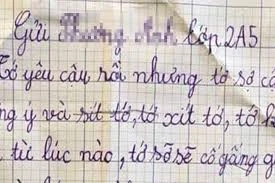 Gửi Phương Anh lớp 2A5
Tớ yêu cậu rồi nhưng tớ sợ cô
ng ý và sít tớ, tớ xít tớ, tớ
từ lúc nào, tớ sõ sẽ cố gắng g